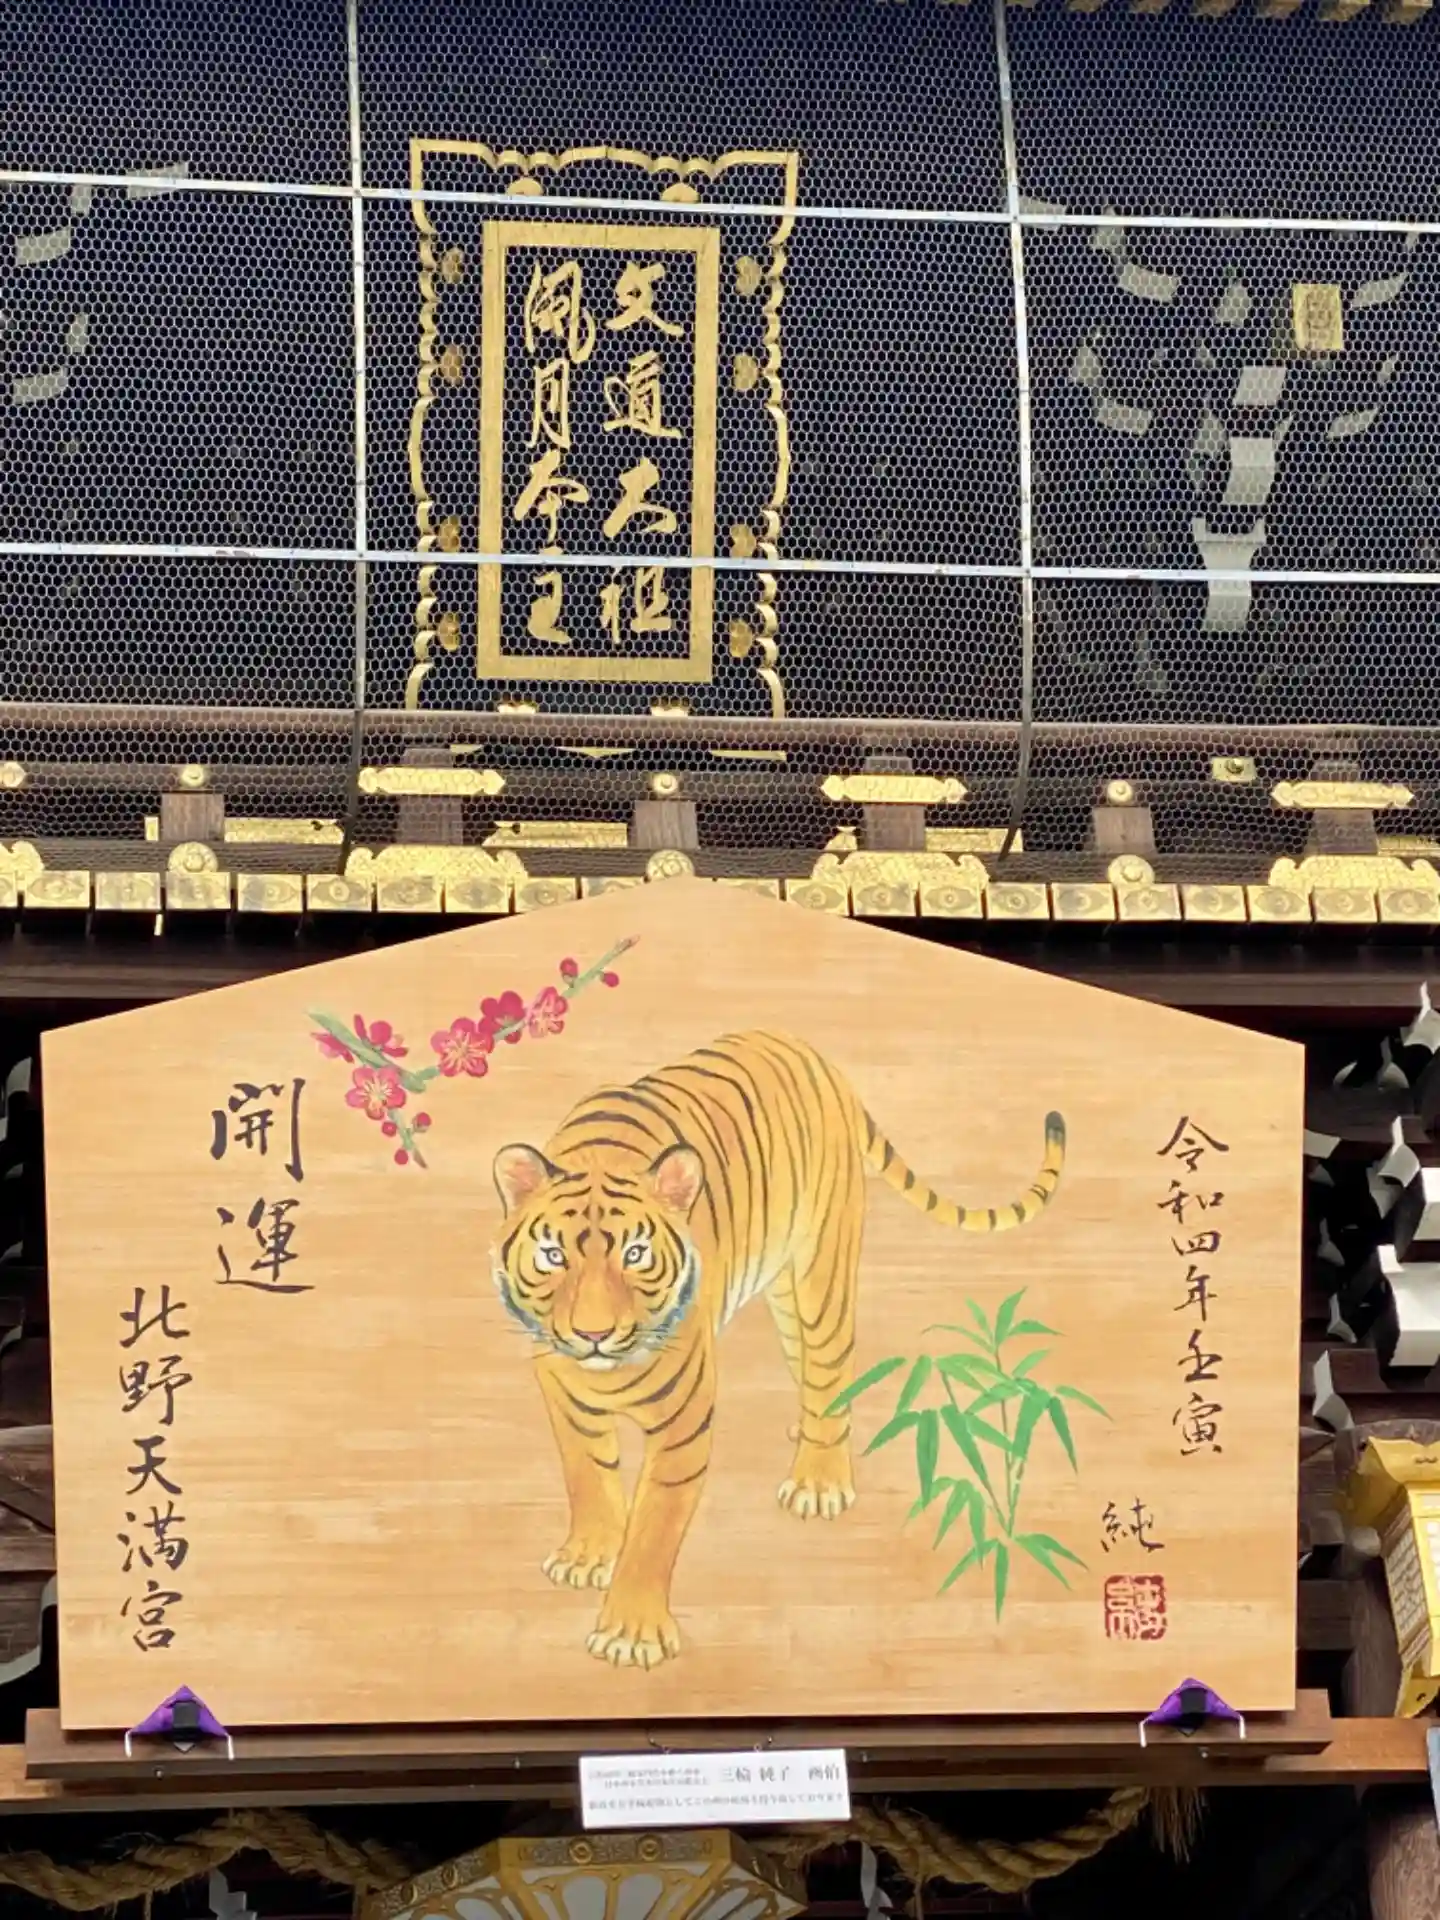 文道大祖
風月本主
令和四年壬寅
純
開運
北野天満宮
三輪 純子 画伯